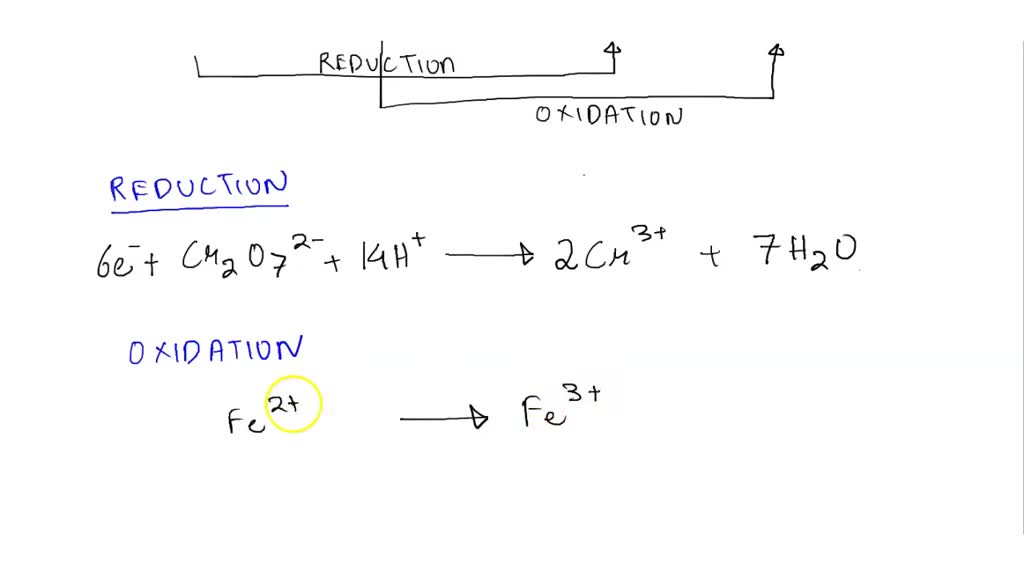 REDUCTION
OXIDATION
REDUCTION
6e⁻ + Cr₂O₇²⁻ + 14H⁺ → 2Cr³⁺ + 7H₂O
OXIDATION
Fe²⁺ → Fe³⁺